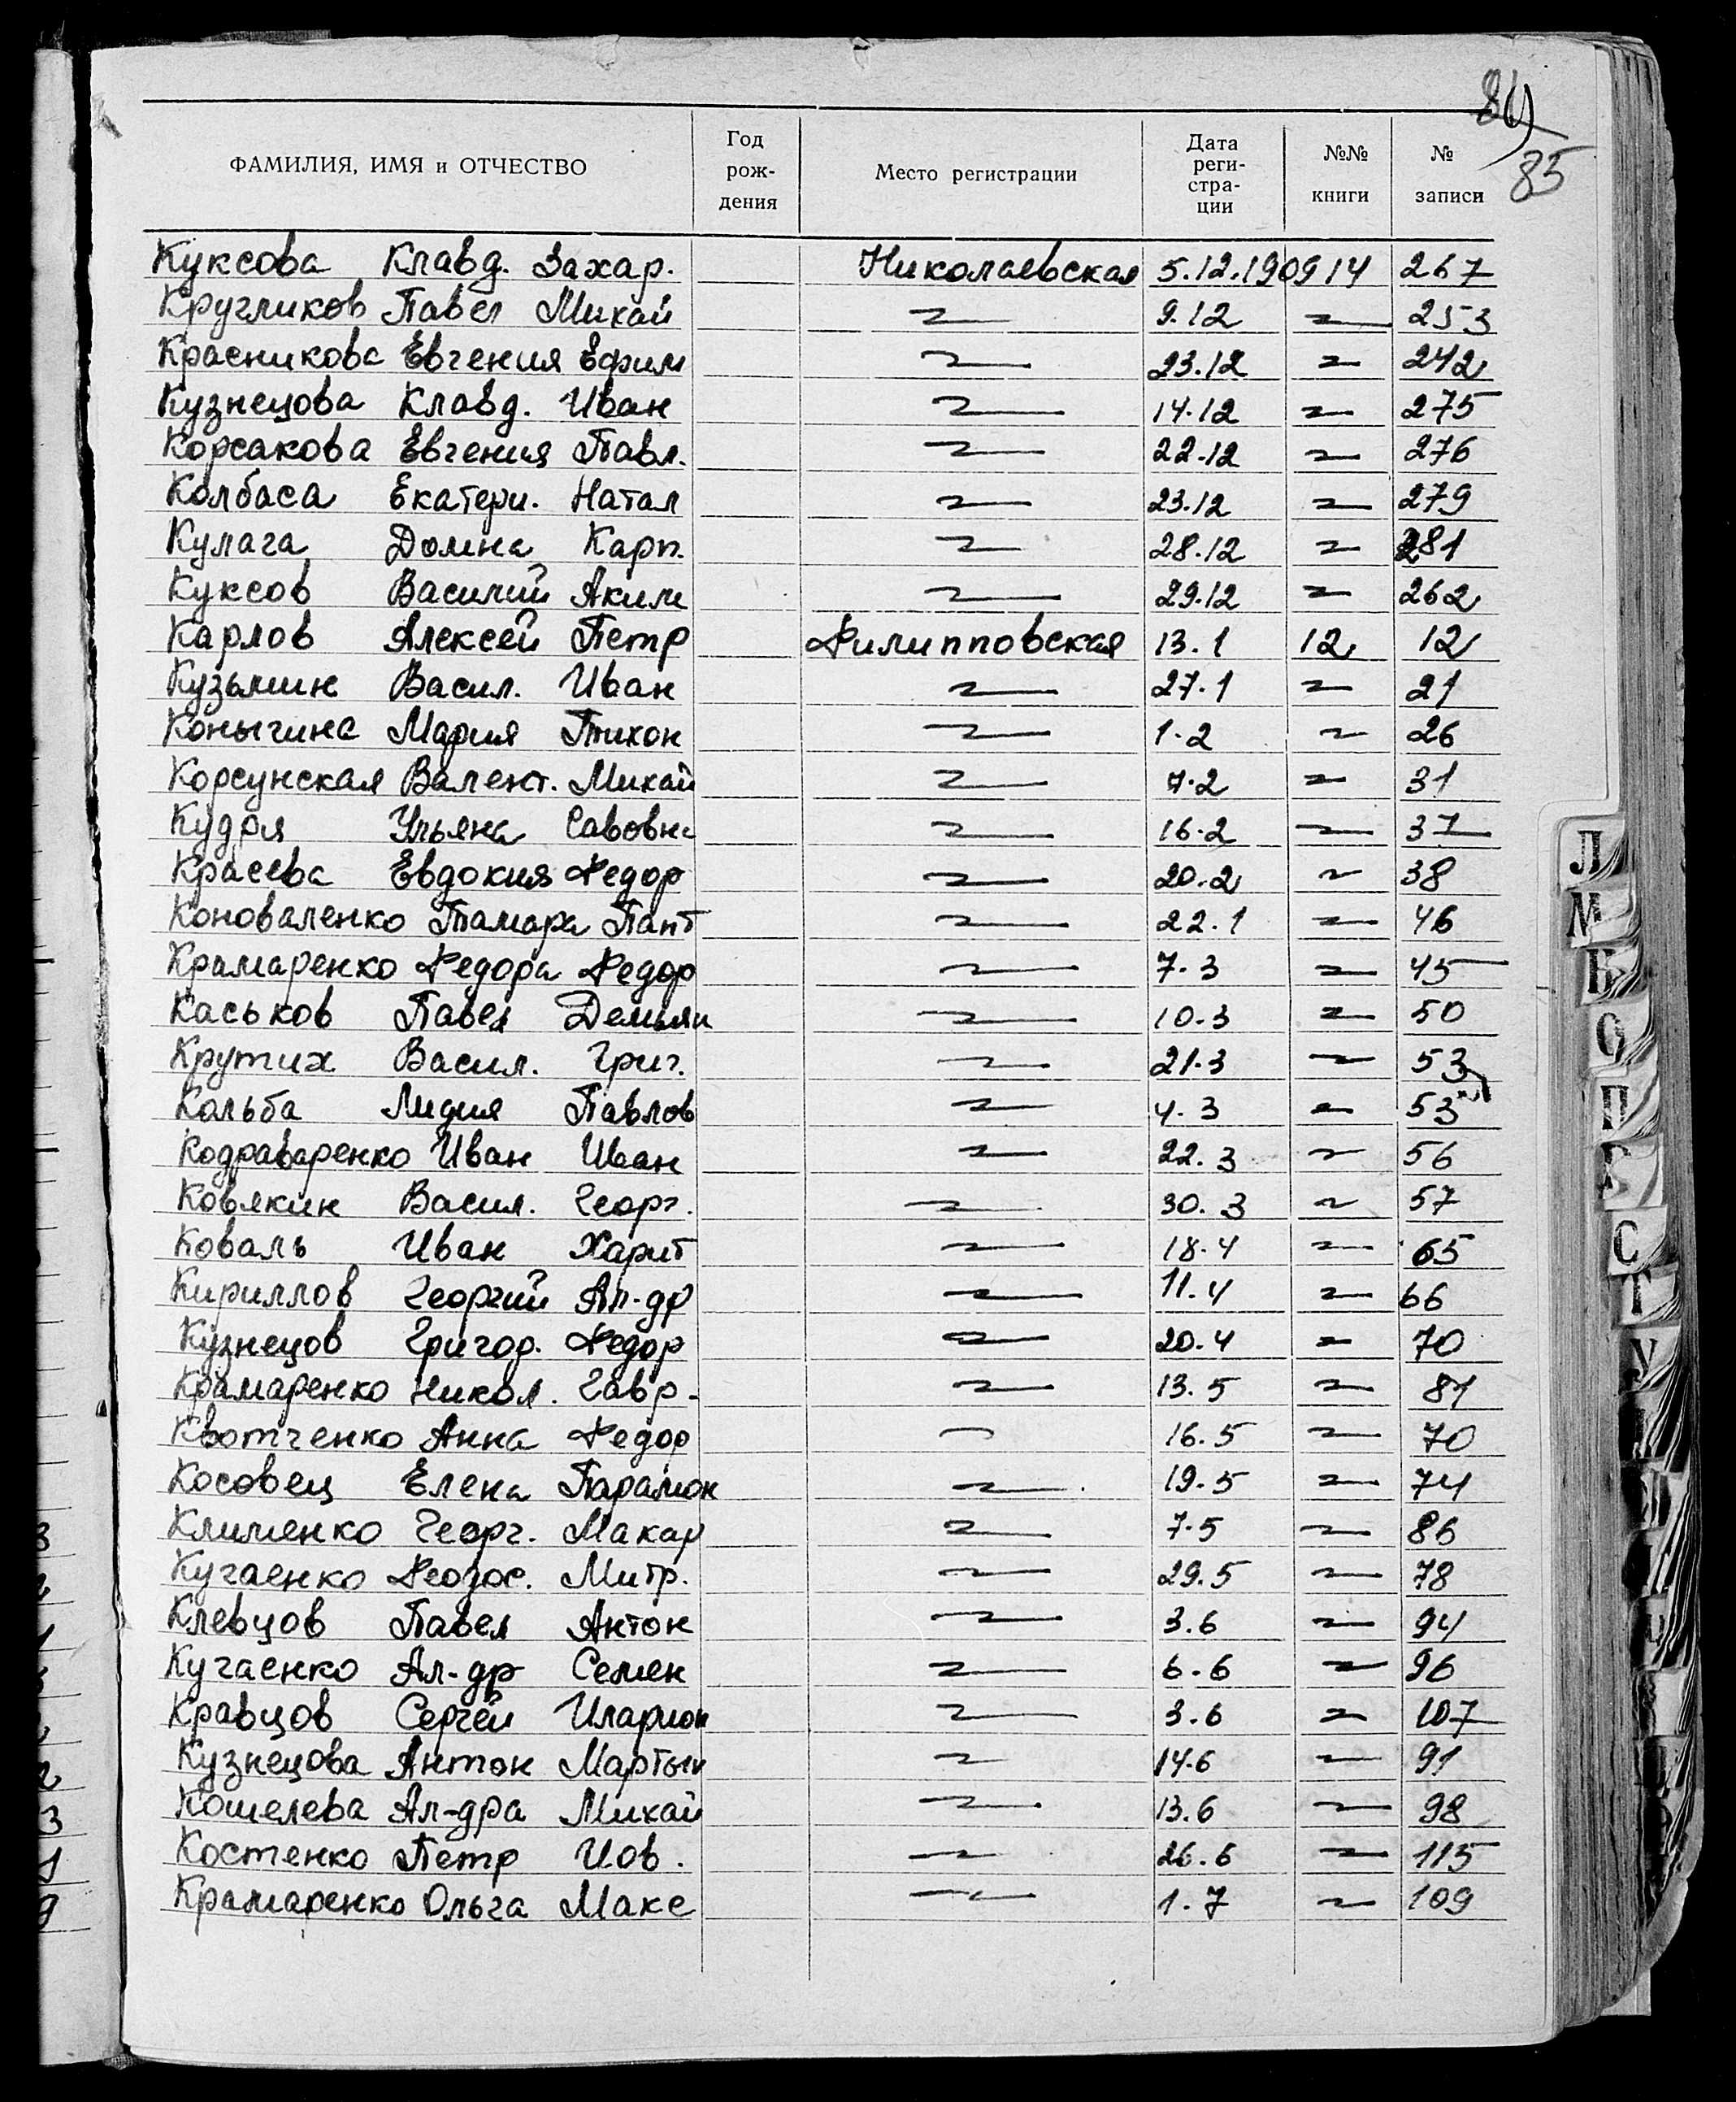 85
ФАМИЛИЯ, ИМЯ и ОТЧЕСТВО Год рож- дения Место регистрации Дата реги- стра- ции №№ книги № записи
Куксова Клавд. Захар. Николаевская 5.12.1909 14 267
Кругликов Павел Михай 9.12 253
Красникова Евгения Ефим 23.12 242
Кузнецова Клавд. Иван 14.12 275
Корсакова Евгения Павл. 22.12 276
Колбаса Екатери. Натал 23.12 279
Кулага Домна Карп. 28.12 281
Куксов Василий Аким 29.12 262
Карлов Алексей Петр Филипповская 13.1 12 12
Кузьмин Васил. Иван 27.1 21
Коныгина Мария Тихон 1.2 26
Корсунская Валент. Михай 7.2 31
Кудря Ульяна Савовна 16.2 37
Красева Евдокия Федор 20.2 38
Коноваленко Тамара Пант 22.1 46
Крамаренко Федора Федор 7.3 45
Каськов Павел Демьян 10.3 50
Крутих Васил. Григ. 21.3 53
Кольба Лидия Павлов 4.3 53
Кодраваренко Иван Иван 22.3 56
Ковякин Васил. Георг. 30.3 57
Коваль Иван Харит 18.4 65
Кириллов Георгий Ал-др 11.4 66
Кузнецов Григор. Федор 20.4 70
Крамаренко Никол. Гавр. 13.5 81
Квотченко Анна Федор 16.5 70
Косовец Елена Парамон 19.5 74
Клименко Георг. Макар 7.5 86
Кугаенко Феодос. Митр. 29.5 78
Клевцов Павел Антон 3.6 94
Кугаенко Ал-др Семен 6.6 96
Кравцов Сергей Иларион 3.6 107
Кузнецова Антон Мартын 14.6 91
Кошелева Ал-дра Михай 13.6 98
Костенко Петр Иов. 26.6 115
Крамаренко Ольга Макс 1.7 109
Л
М
О
П
С
Т
У